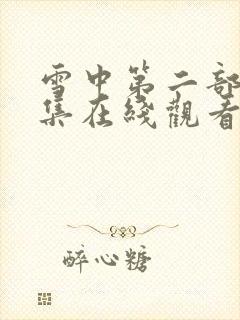 雪中第二部
集在线觀看
醉心糖